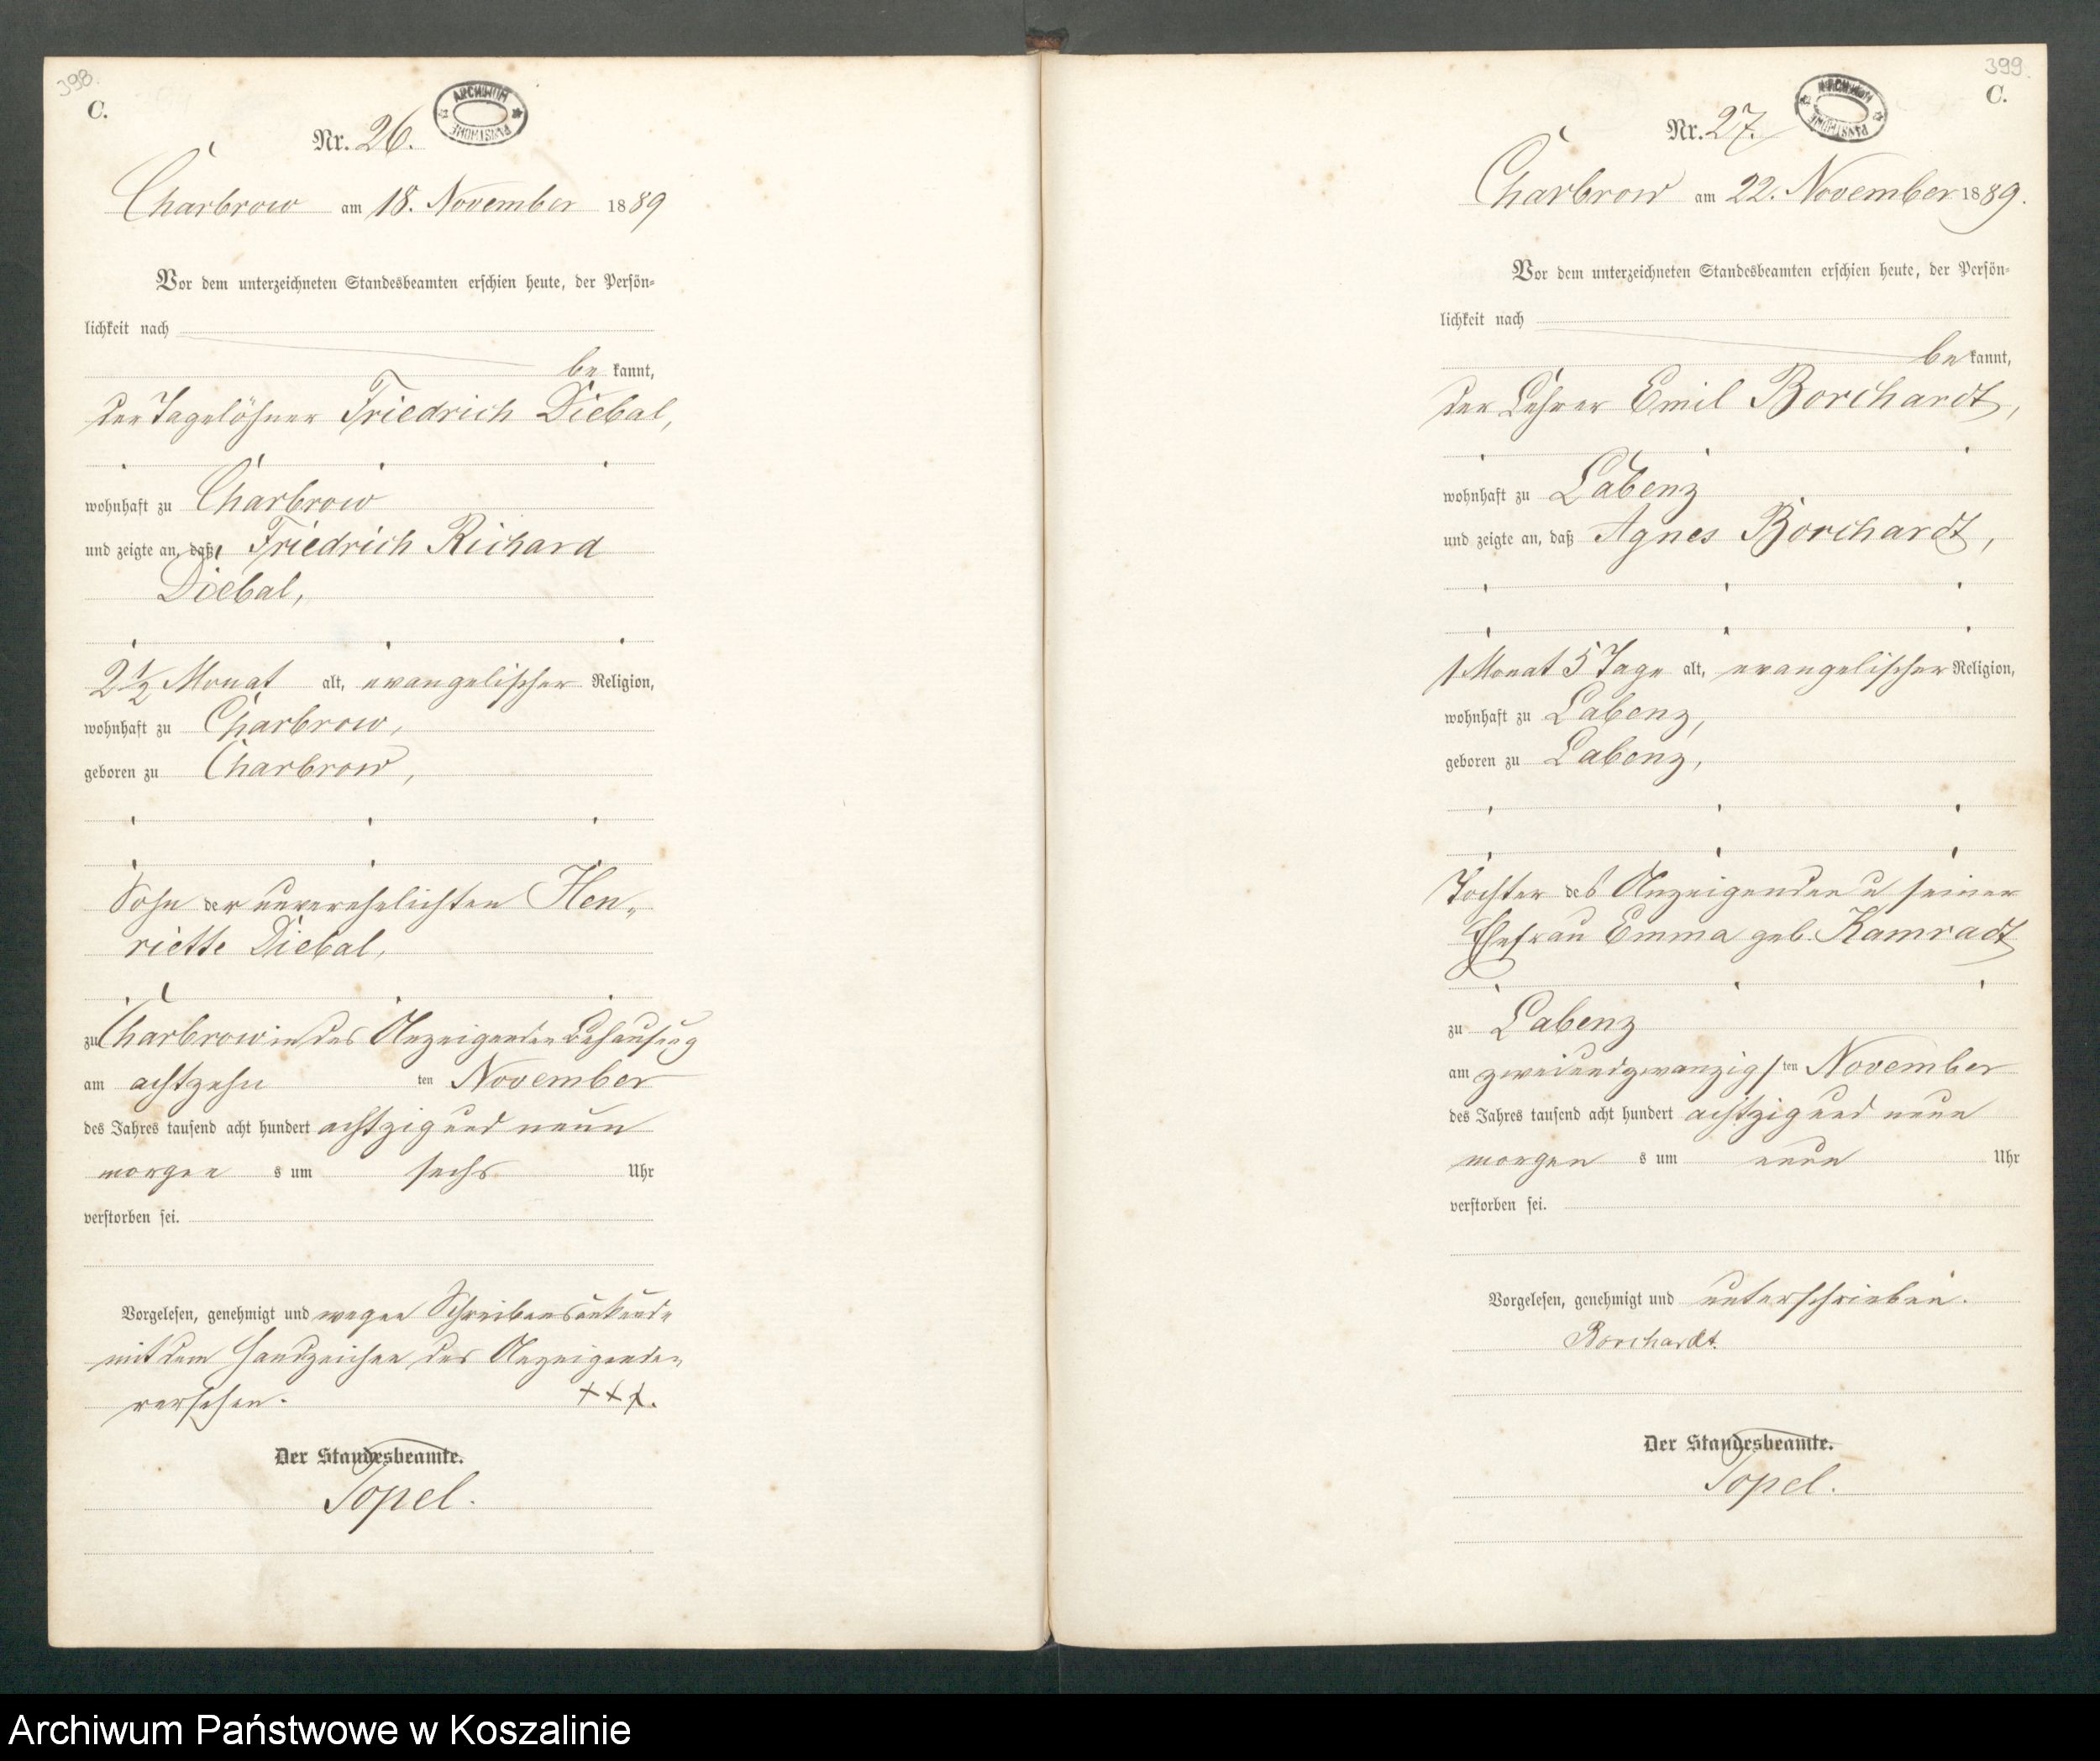 398.
C.
ARCHIWUM PAŃSTWOWE
Nr. 26.
Charbrow am 18. November 1889
Vor dem unterzeichneten Standesbeamten erschien heute, der Persön-
lichkeit nach
be kannt,
der Tagelöhner Friedrich Diebal,
wohnhaft zu Charbrow
und zeigte an, daß Friedrich Richard
Diebal,
2 1/2 Monat alt, evangelischer Religion,
wohnhaft zu Charbrow,
geboren zu Charbrow,
Sohn der unverehelichten Hen-
riette Diebal,
zu Charbrow in des Anzeigenden Behausung
am achtzehn ten November
des Jahres tausend acht hundert achtzig und neun
morgen s um sechs Uhr
verstorben sei.
Vorgelesen, genehmigt und wegen Schreibensunkunde
mit dem Handzeichen des Anzeigenden
versehen. +++.
Der Standesbeamte.
Topel.
399.
C.
ARCHIWUM PAŃSTWOWE
Nr. 27.
Charbrow am 22. November 1889.
Vor dem unterzeichneten Standesbeamten erschien heute, der Persön-
lichkeit nach
be kannt,
der Lehrer Emil Borchardt,
wohnhaft zu Labenz
und zeigte an, daß Agnes Borchardt,
1 Monat 5 Tage alt, evangelischer Religion,
wohnhaft zu Labenz,
geboren zu Labenz,
Tochter des Anzeigenden u seiner
Ehefrau Emma geb. Kamradt
zu Labenz
am zweiundzwanzigs ten November
des Jahres tausend acht hundert achtzig und neun
morgen s um neun Uhr
verstorben sei.
Vorgelesen, genehmigt und unterschrieben.
Borchardt.
Der Standesbeamte.
Topel.
Archiwum Państwowe w Koszalinie